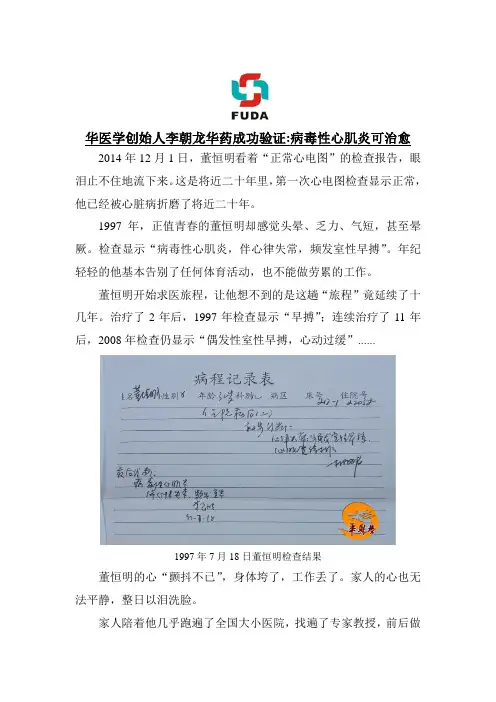 FUDA
华医学创始人李朝龙华药成功验证:病毒性心肌炎可治愈
2014年12月1日，董恒明看着“正常心电图”的检查报告，眼
泪止不住地流下来。这是将近二十年里，第一次心电图检查显示正常，
他已经被心脏病折磨了将近二十年。
1997 年，正值青春的董恒明却感觉头晕、乏力、气短，甚至晕
厥。检查显示“病毒性心肌炎，伴心律失常，频发室性早搏”。年纪
轻轻的他基本告别了任何体育活动，也不能做劳累的工作。
董恒明开始求医旅程，让他想不到的是这趟“旅程”竟延续了十
几年。治疗了2年后，1997年检查显示“早搏”；连续治疗了11年
后，2008年检查仍显示“偶发性室性早搏，心动过缓”......
病程记录表
姓名董恒明性别 年龄 科别 病区 床号 住院号
最后诊断:
病毒性心肌炎
1997年7月18日董恒明检查结果
董恒明的心“颤抖不已”，身体垮了，工作丢了。家人的心也无
法平静，整日以泪洗脸。
家人陪着他几乎跑遍了全国大小医院，找遍了专家教授，前后做